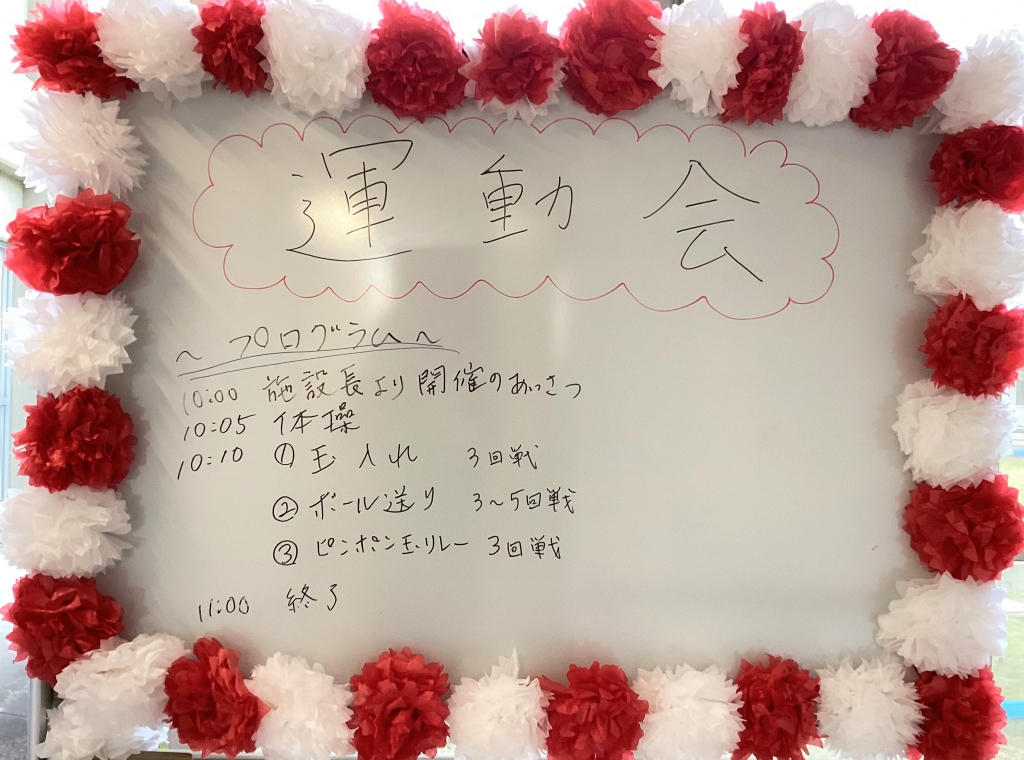 運動会
～プログラム～
10:00 施設長より開催のあいさつ
10:05 体操
10:10 ①玉入れ 3回戦
②ボール送り 3～5回戦
③ピンポン玉リレー 3回戦
11:00 終了